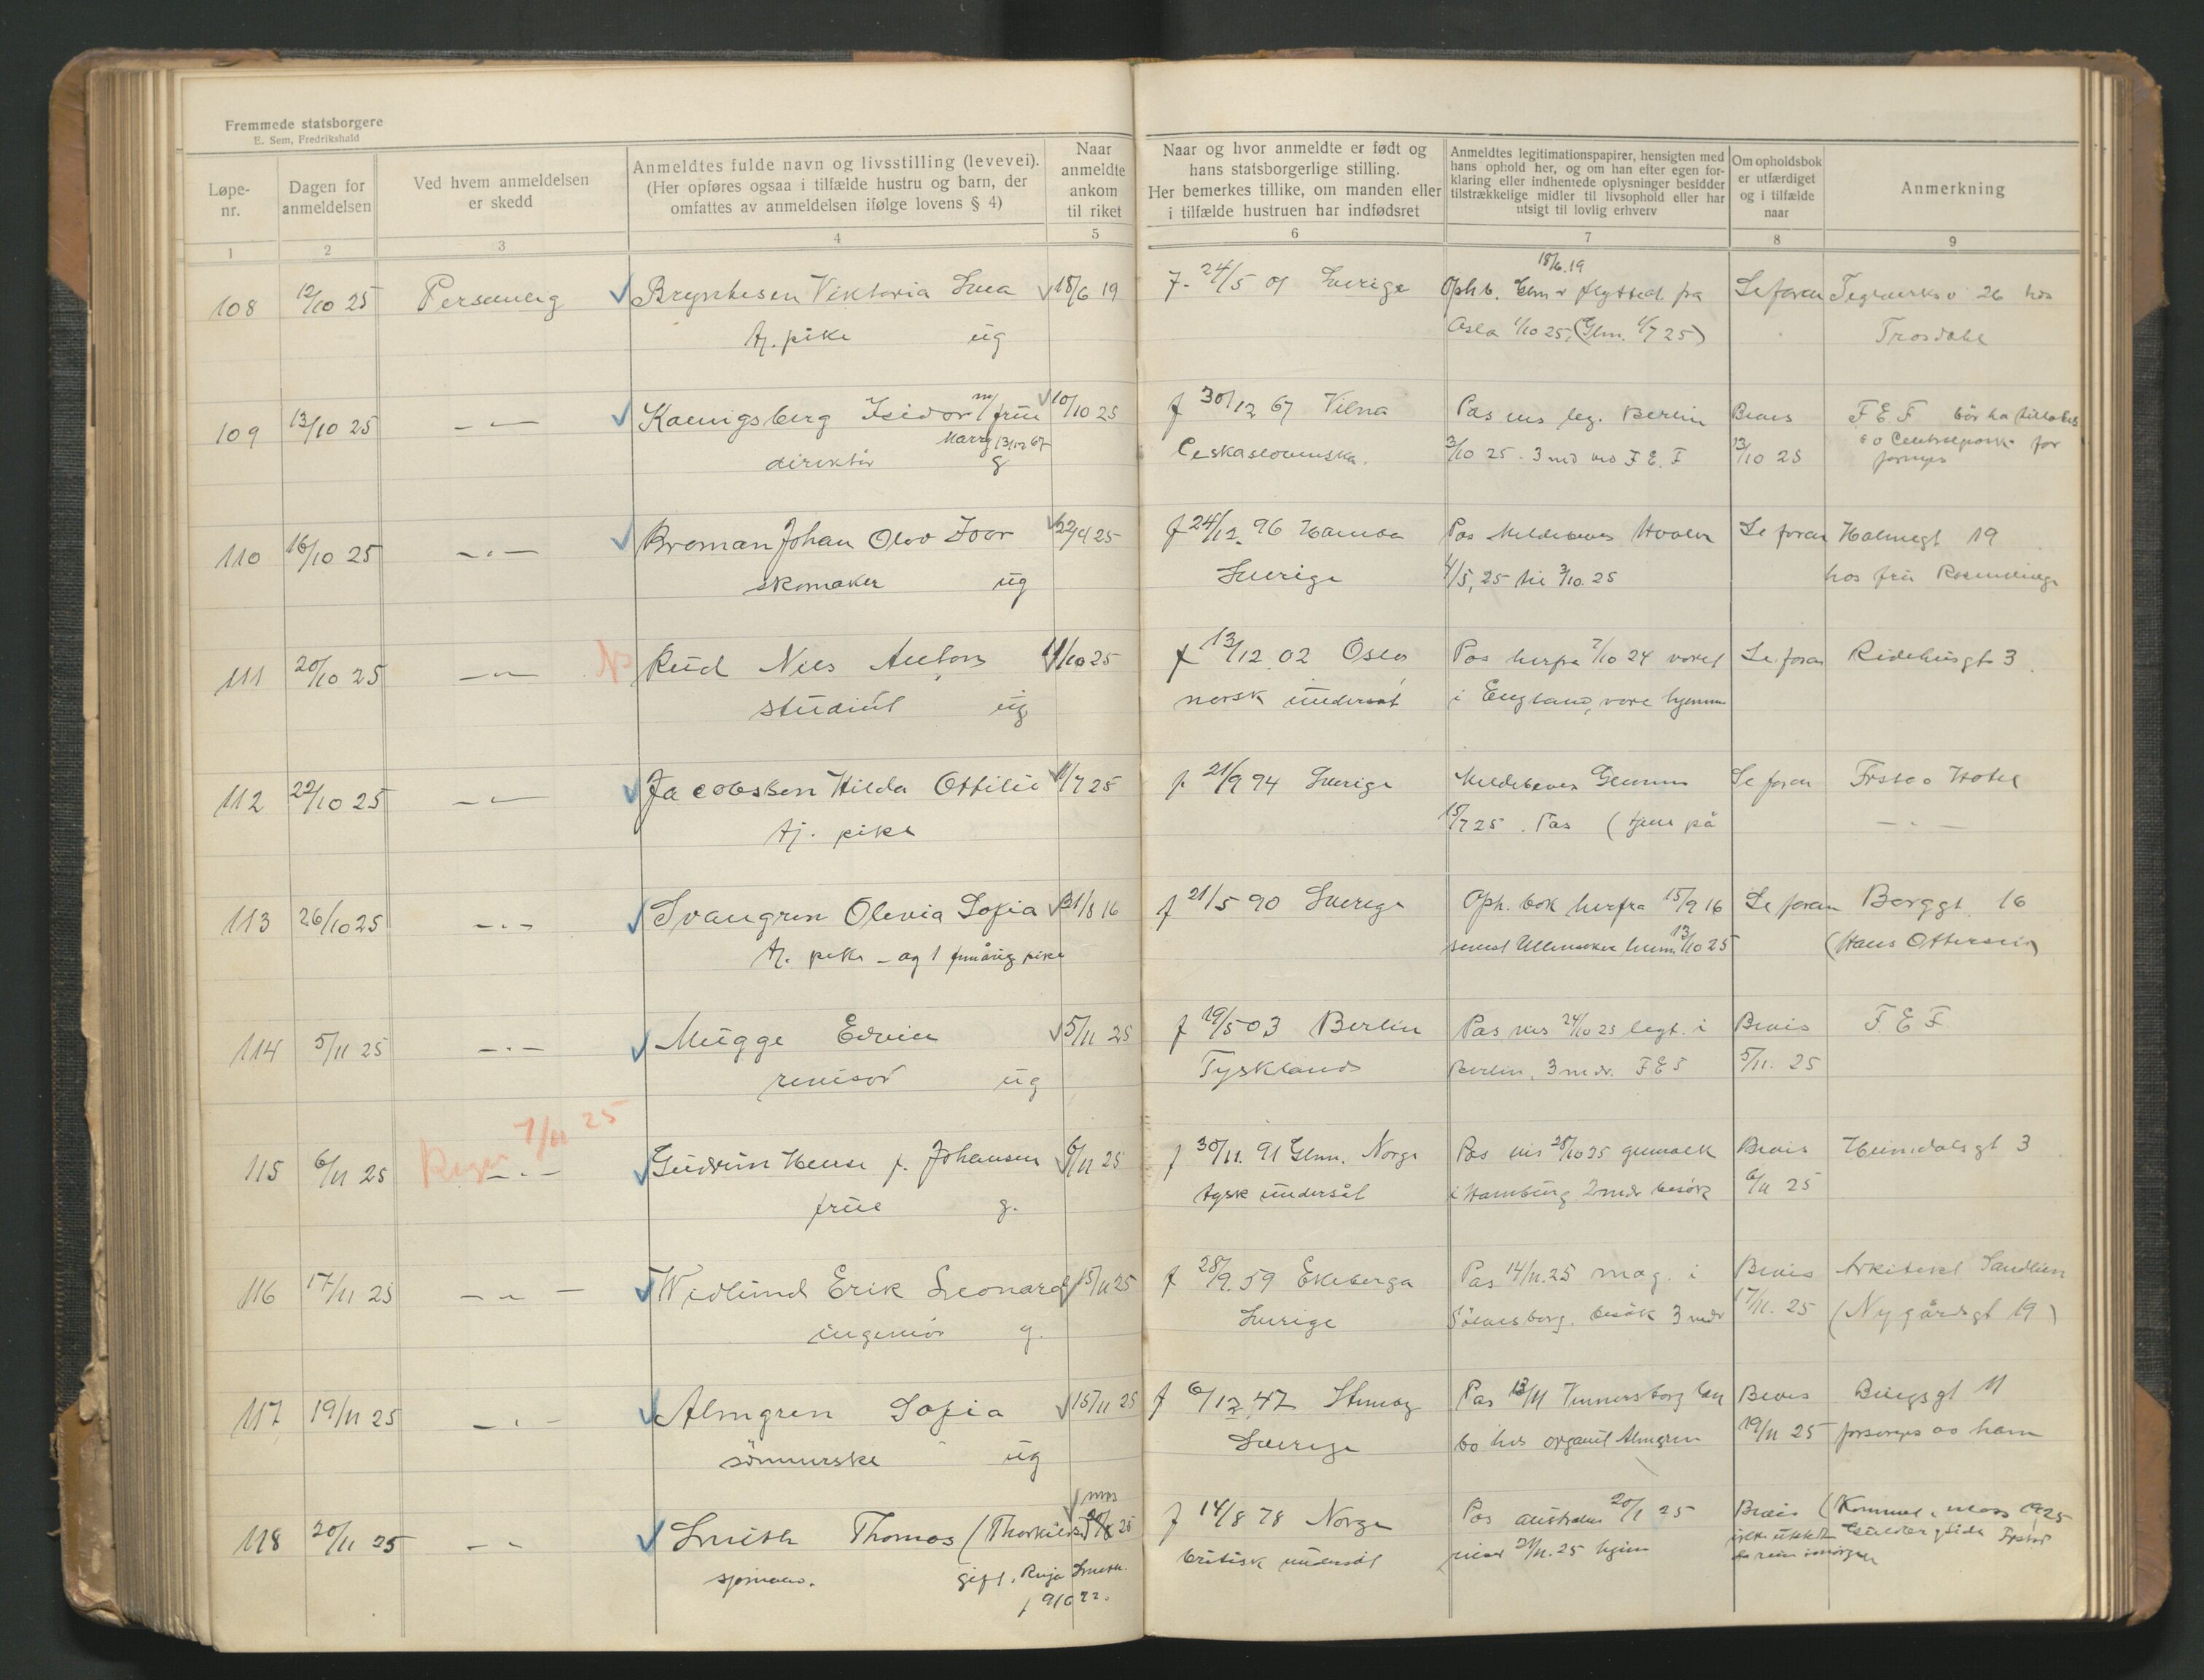 Fremmede statsborgere
E. Sem, Fredrikshald
Løpe-
nr.
Dagen for
anmeldelsen
Ved hvem anmeldelsen
er skedd
Anmeldtes fulde navn og livsstilling (levevei).
(Her opføres ogsaa i tilfælde hustru og barn, der
omfattes av anmeldelsen ifølge lovens § 4)
Naar
anmeldte
ankom
til riket
Naar og hvor anmeldte er født og
hans statsborgerlige stilling.
Her bemerkes tillike, om manden eller
i tilfælde hustruen har indfødsret
Anmeldtes legitimationspapirer, hensigten med
hans ophold her, og om han efter egen for-
klaring eller indhentede oplysninger besidder
tilstrækkelige midler til livsophold eller har
utsigt til lovlig erhverv
Om opholdsbok
er utfærdiget
og i tilfælde
naar
Anmerkning
1 2 3 4 5 6 7 8 9
18/6.19
108 12/10 25 Personlig Viktoria 18/6 19 f. 24/5 01 Sverige Opht. Glm flyttet fra Se foran 26 hos
tj. pike ug Oslo 1/10 25, (Glm. 1/7 25) Trosdahl
109 13/10 25 — — Koenigsberg Isidor m/ frue 10/10 25 f 30/12 67 Vilna Pas vis leg. Berlin Bevis F E F bör ha
Harry 13/12 67
direktör g 3/10 25 - 3 md ved F. E. F 13/10 25
110 16/10 25 — . — Broman Johan Olov Ivar 22/4 25 f 24/12. 96 Sverige Pas Meldebevis Hvaler Se foran Holmegt 19
skomaker ug 4/5, 25 til 3/10. 25 hos fru
111 20/10 25 — — Rud Nils Anton 11/10 25 f 13/12. 02 Oslo Pas herfra 7/10 24 vært Se foran Ridehusgt 3
student ug norsk undersåt i England, vore hjemme
112 22/10 25 — — Jacobsson Hilda Ottilie 1/7 25 f 21/9 94 Sverige Meldebevis Glemmen Se foran Frstad Hotel
tj. pike 15/7 25 . Pas (tjene på — . —
113 26/10 25 — . — Svangren Olivia Sofia 31/8 16 f 21/5 90 Sverige Oph. bok herfra 15/9 16 Se foran Borggt 16
tj. pike - og 1 femårig pike senest Ullensaker 13/10 25 (Hans Ottersen)
114 5/11 25 — . — Mügge Edwin 5/11 25 f 19/5 03 Berlin Pas vis 24/10 25 legt. i Bevis F. E F
revisor ug Tyskland Berlin, 3 mdr. F E F 5/11. 25
7/11 25
115 6/11 25 — . — Gudrun Hense f. Johansen 6/11 25 f 30/11. 91 Glm. Norge Pas vis 28/10 25 Bevis Heimdalsgt 3
frue g. tysk undersåt i Hamburg 2 mdr besök 6/11 25
116 17/11 25 — — Widlund Erik Leonard 15/11 25 f 28/9. 59 Ekeberga Pas 14/11. 25 mag. i Bevis Arkitekt Sandlien
ingeniör g. Sverige Sölvesborg. besök 3 mdr 17/11. 25 (Nygårdsgt 19)
117 19/11 25 — . — Almgren Sofia 15/11 25 f 6/12. 47 Sverige Pas 13/11 Vennersborg Bevis
sömmerske ug bo hos organist Almgren 19/11 25 forsørges av ham
118 20/11 25 — — Smith Thomas (Thorkildsen) f 14/8 78 Norge Pas 20/1 25 Bevis
sjømann. gift. britisk undersåt hjem